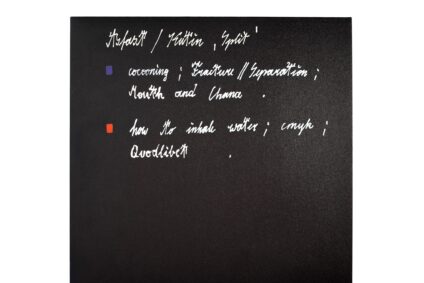 Asfast / Kutin , Split '
cocooning ; Fracture // Separation ;
Mouth and Chana .
how to inhale water ; cmyk ;
Quodlibet .